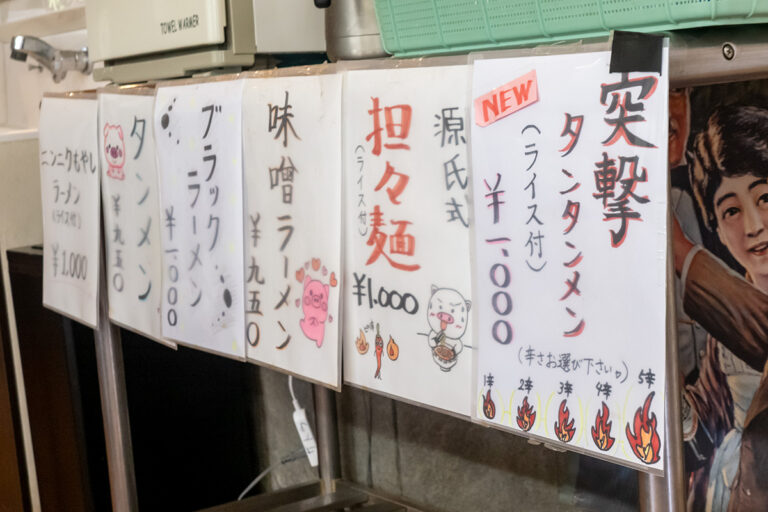 TOWEL WARMER
突撃
タンタンメン
(ライス付)
¥一,000
NEW
(辛さお選び下さい)
1辛 2辛 3辛 4辛 5辛
源氏式
担々麺
(ライス付)
¥1.000
味噌ラーメン
¥九五〇
ブラック
ラーメン
¥一,000
タンメン
¥九五〇
ニンニクもやし
ラーメン
(ライス付)
¥1.000